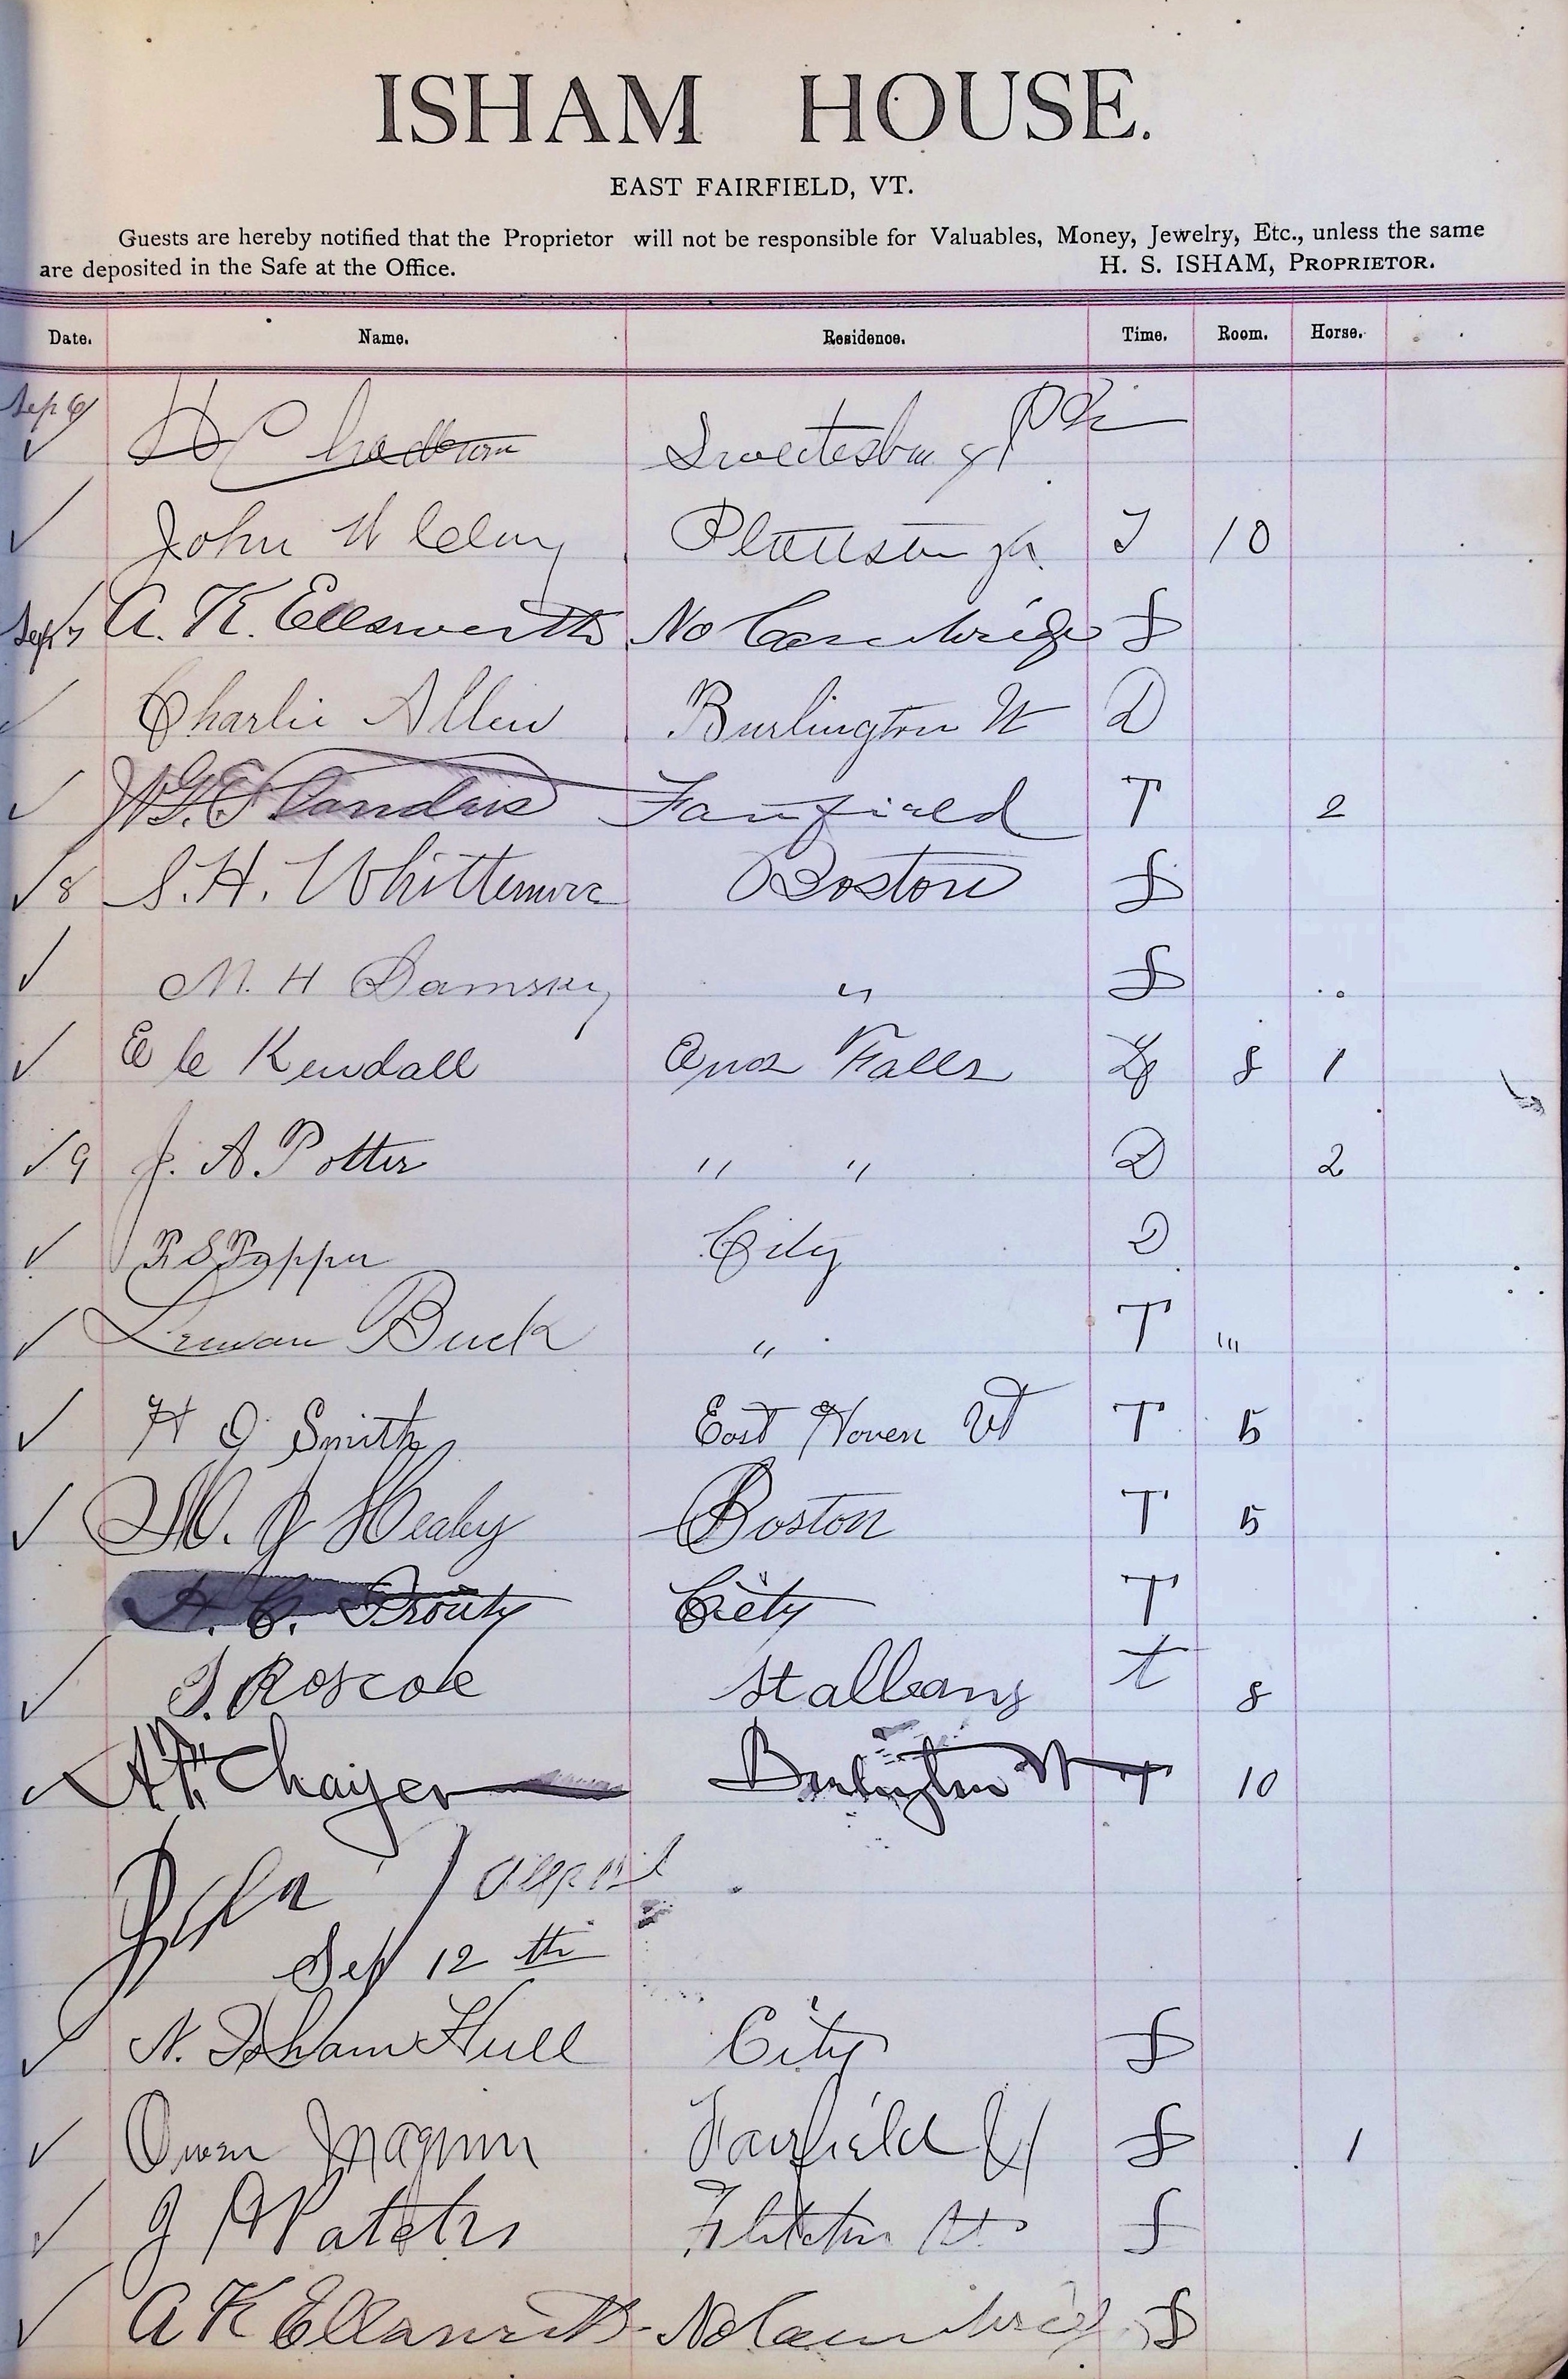 ISHAM HOUSE.
EAST FAIRFIELD, VT.
Guests are hereby notified that the Proprietor will not be responsible for Valuables, Money, Jewelry, Etc., unless the same
are deposited in the Safe at the Office. H. S. ISHAM, PROPRIETOR.
Date. Name. Residence. Time. Room. Horse.
Sep 6
✓ Sweetsburgh
✓ John W 10
Sept 7 A. K. Ellsworth No Cambridge S
✓ Charlie Allen Burlington Vt D
✓ W. G. Flanders Fairfield T 2
✓ 8 S. H. Whittemore Boston S
✓ M. H Samsky " S
✓ E C Kendall Enos Falls 8 1
✓ 9 J. A. Potter " " D 2
✓ R S City D
✓ Leman Buck " T "'
✓ H J Smith East Haven Vt T 5
✓ M. J Healy Boston T 5
H. C. Prouty City T
✓ J. Roscoe St albans t 8
✓ A. P. Thayer Burlington Vt T 10
Sep 12 th
✓ N. Isham Hull City S
✓ Owen Maginn Fairfield Vt S 1
✓ J A Fletcher Vt S
✓ A K Ellsworth No Cambridge S